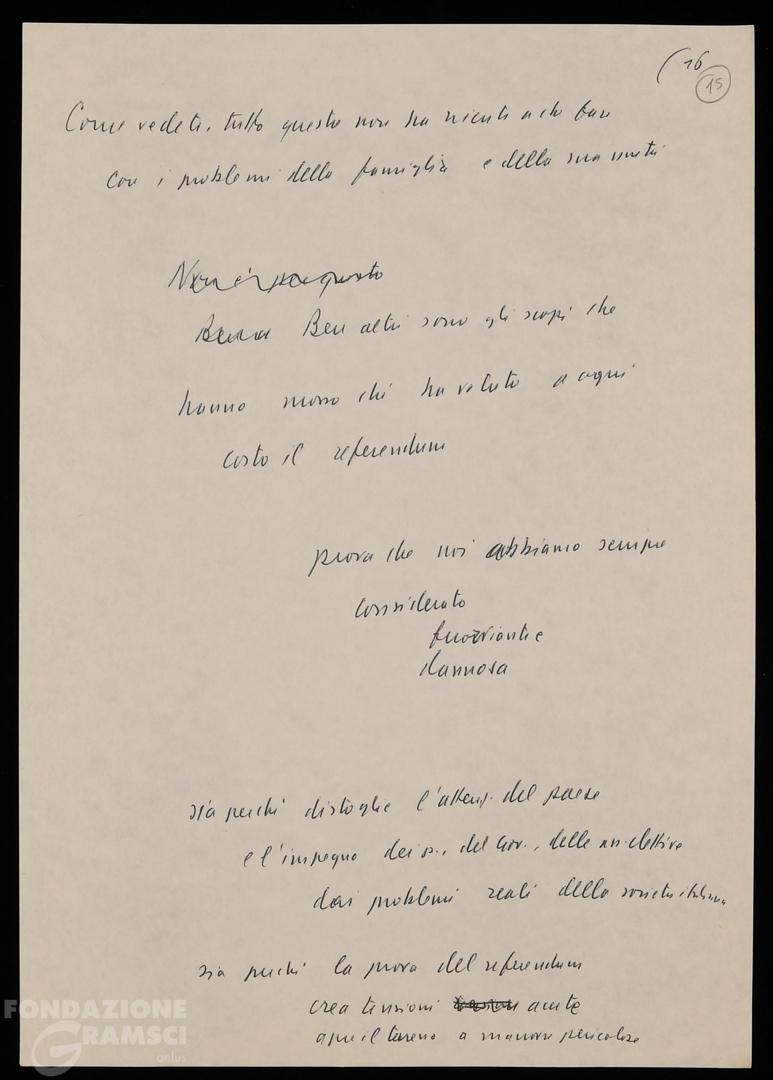 (16
15
Come vedete, tutto questo non ha niente a che fare
con i problemi della famiglia e della sua unità
Non è per questo
Ben altri sono gli scopi che
hanno mosso chi ha voluto a ogni
costo il referendum
prova che noi abbiamo sempre
considerato
fuorviante
dannosa
sia perché distoglie l'attenz. del paese
e l'impegno dei p., del Gov., delle ass. elettive
dai problemi reali della società italiana
sia perché la prova del referendum
crea tensioni acute
apre il terreno a manovre pericolose
FONDAZIONE
GRAMSCI
onlus